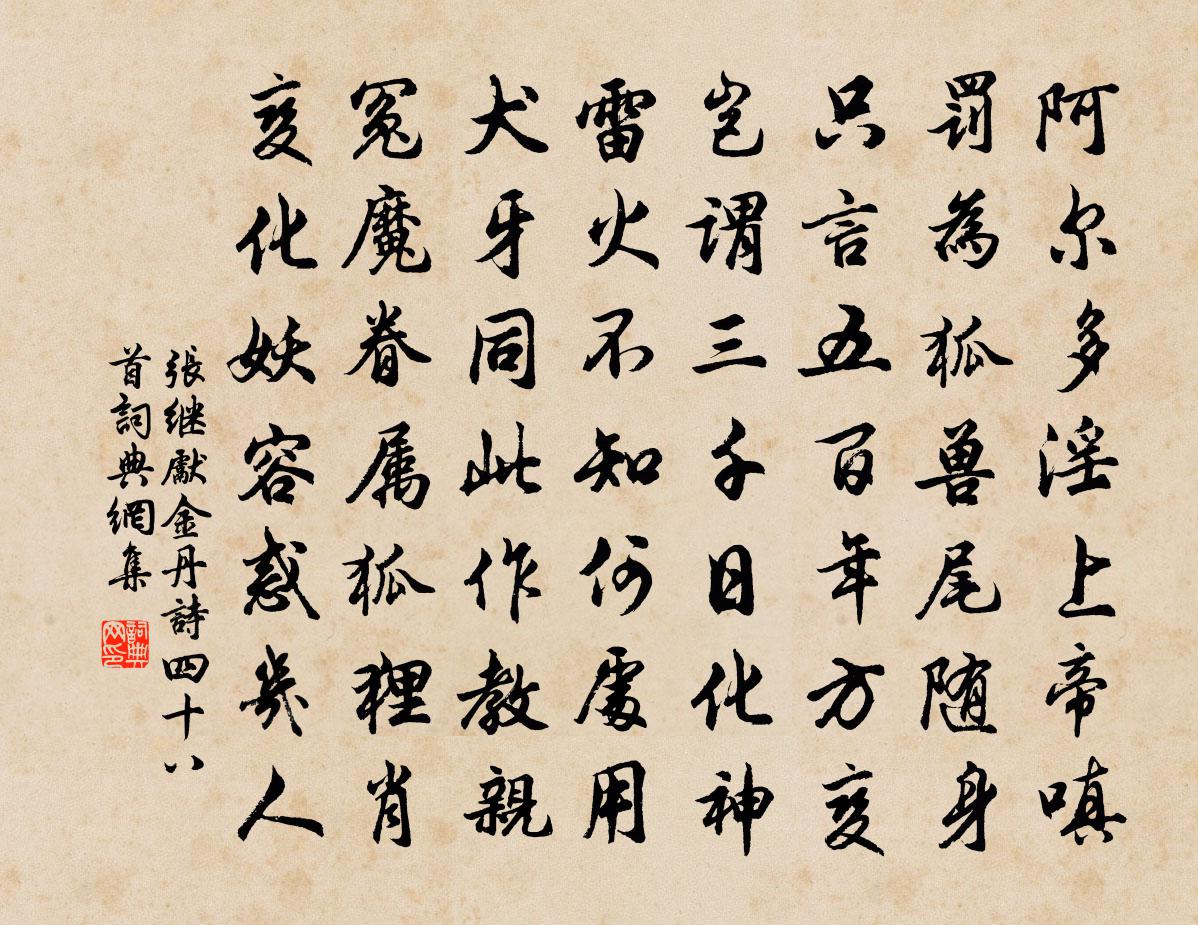 阿尔多淫上帝嗔
罰為狐兽尾随身
只言五百年方变
岂謂三千日化神
雷火不知何處用
犬牙同此作教親
冤魔眷属狐狸肖
变化妖容惑几人
張继獻金丹詩四十八
首詞典網集
詞典网印